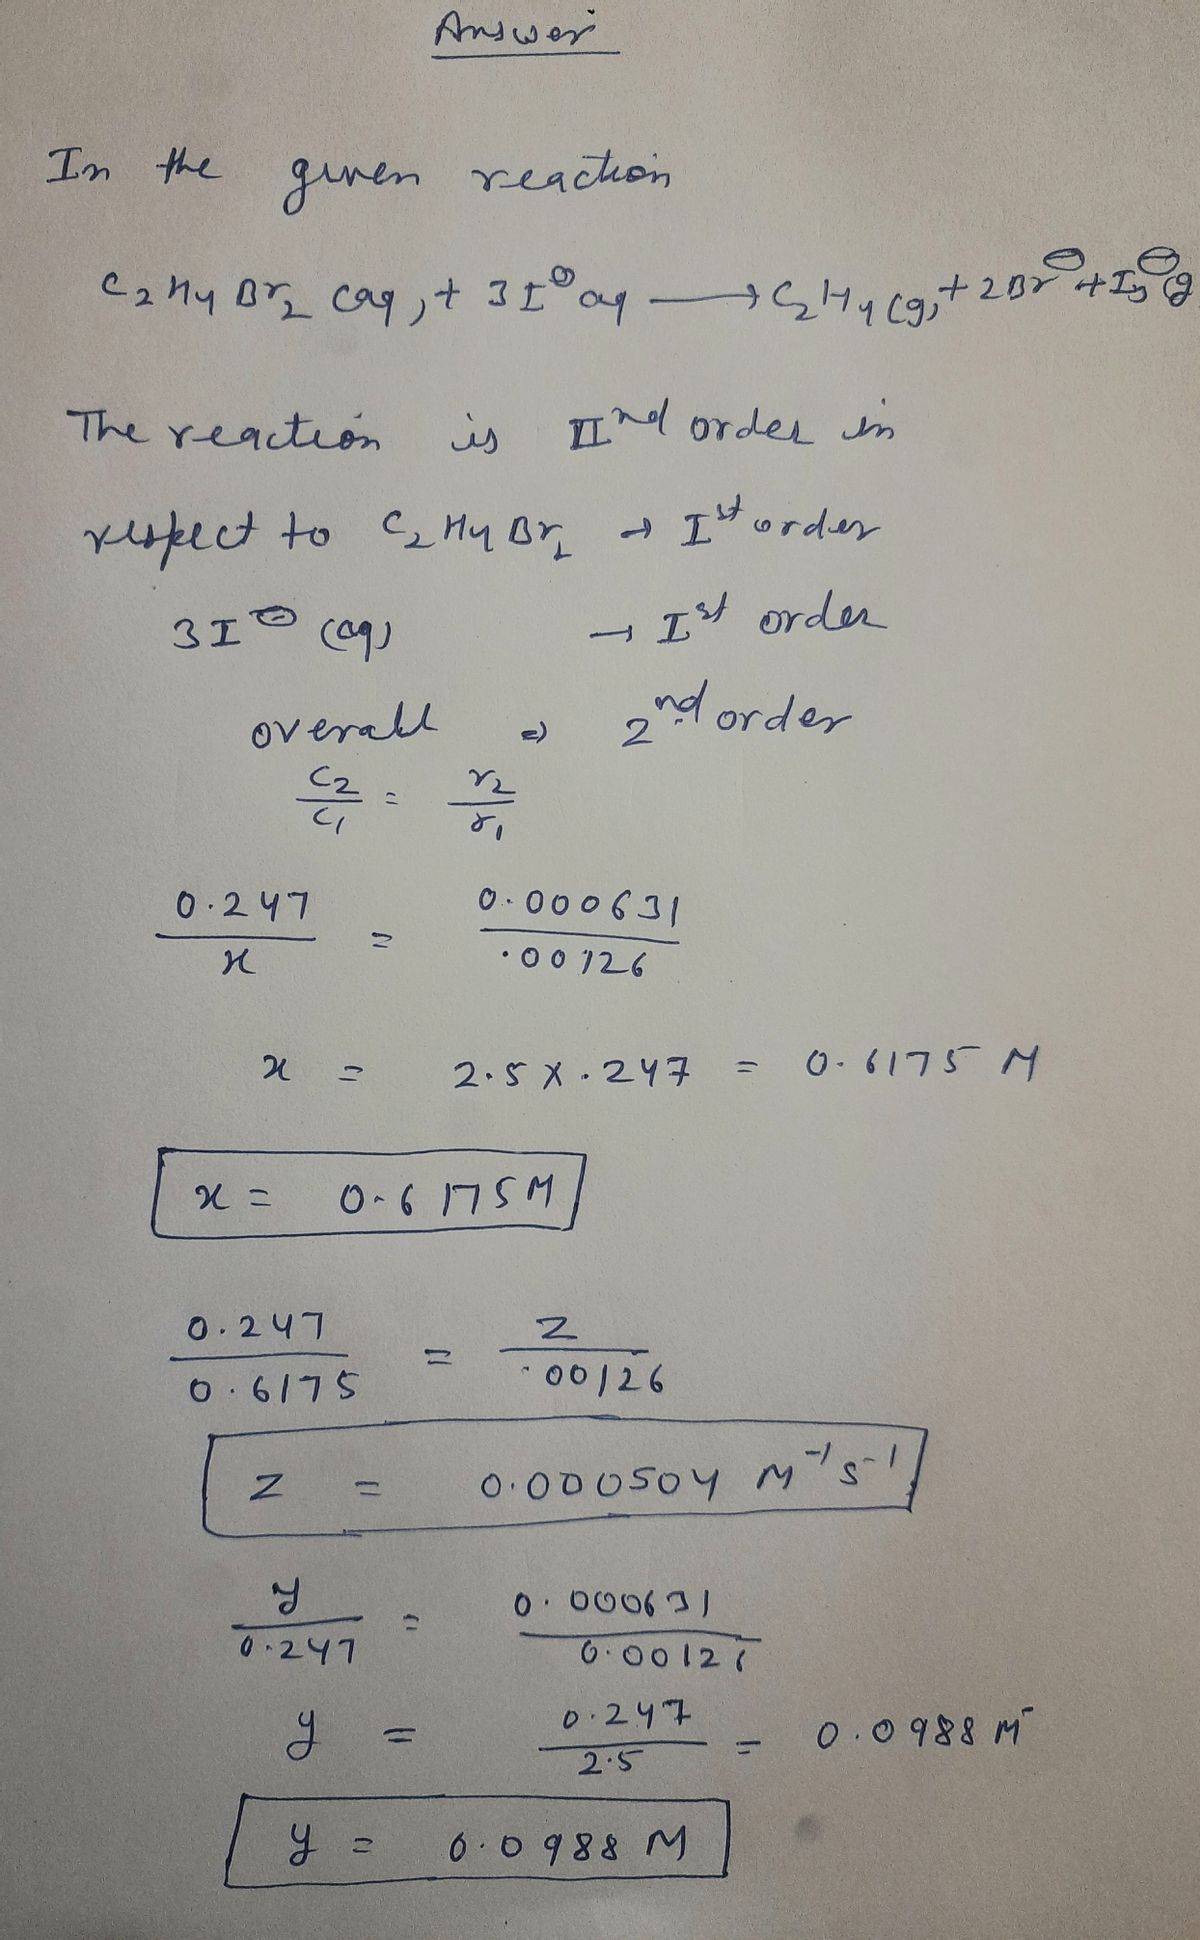 Answer
In the given reaction
C2H4Br2 (aq) + 3I⊖ aq → C2H4(g) + 2Br⊖ + I3⊖ g
The reaction is IInd order in
respect to C2H4Br2 → Ist order
3I⊖ (aq) → Ist order
overall ⇒ 2nd order
C2/C1 = r2/r1
0.247/x = 0.000631/.00126
x = 2.5 X .247 = 0.6175 M
x = 0.6175M
0.247/0.6175 = Z/.00126
Z = 0.000504 M⁻¹s⁻¹
y/0.247 = 0.000631/0.00126
y = 0.247/2.5 = 0.0988 M
y = 0.0988 M